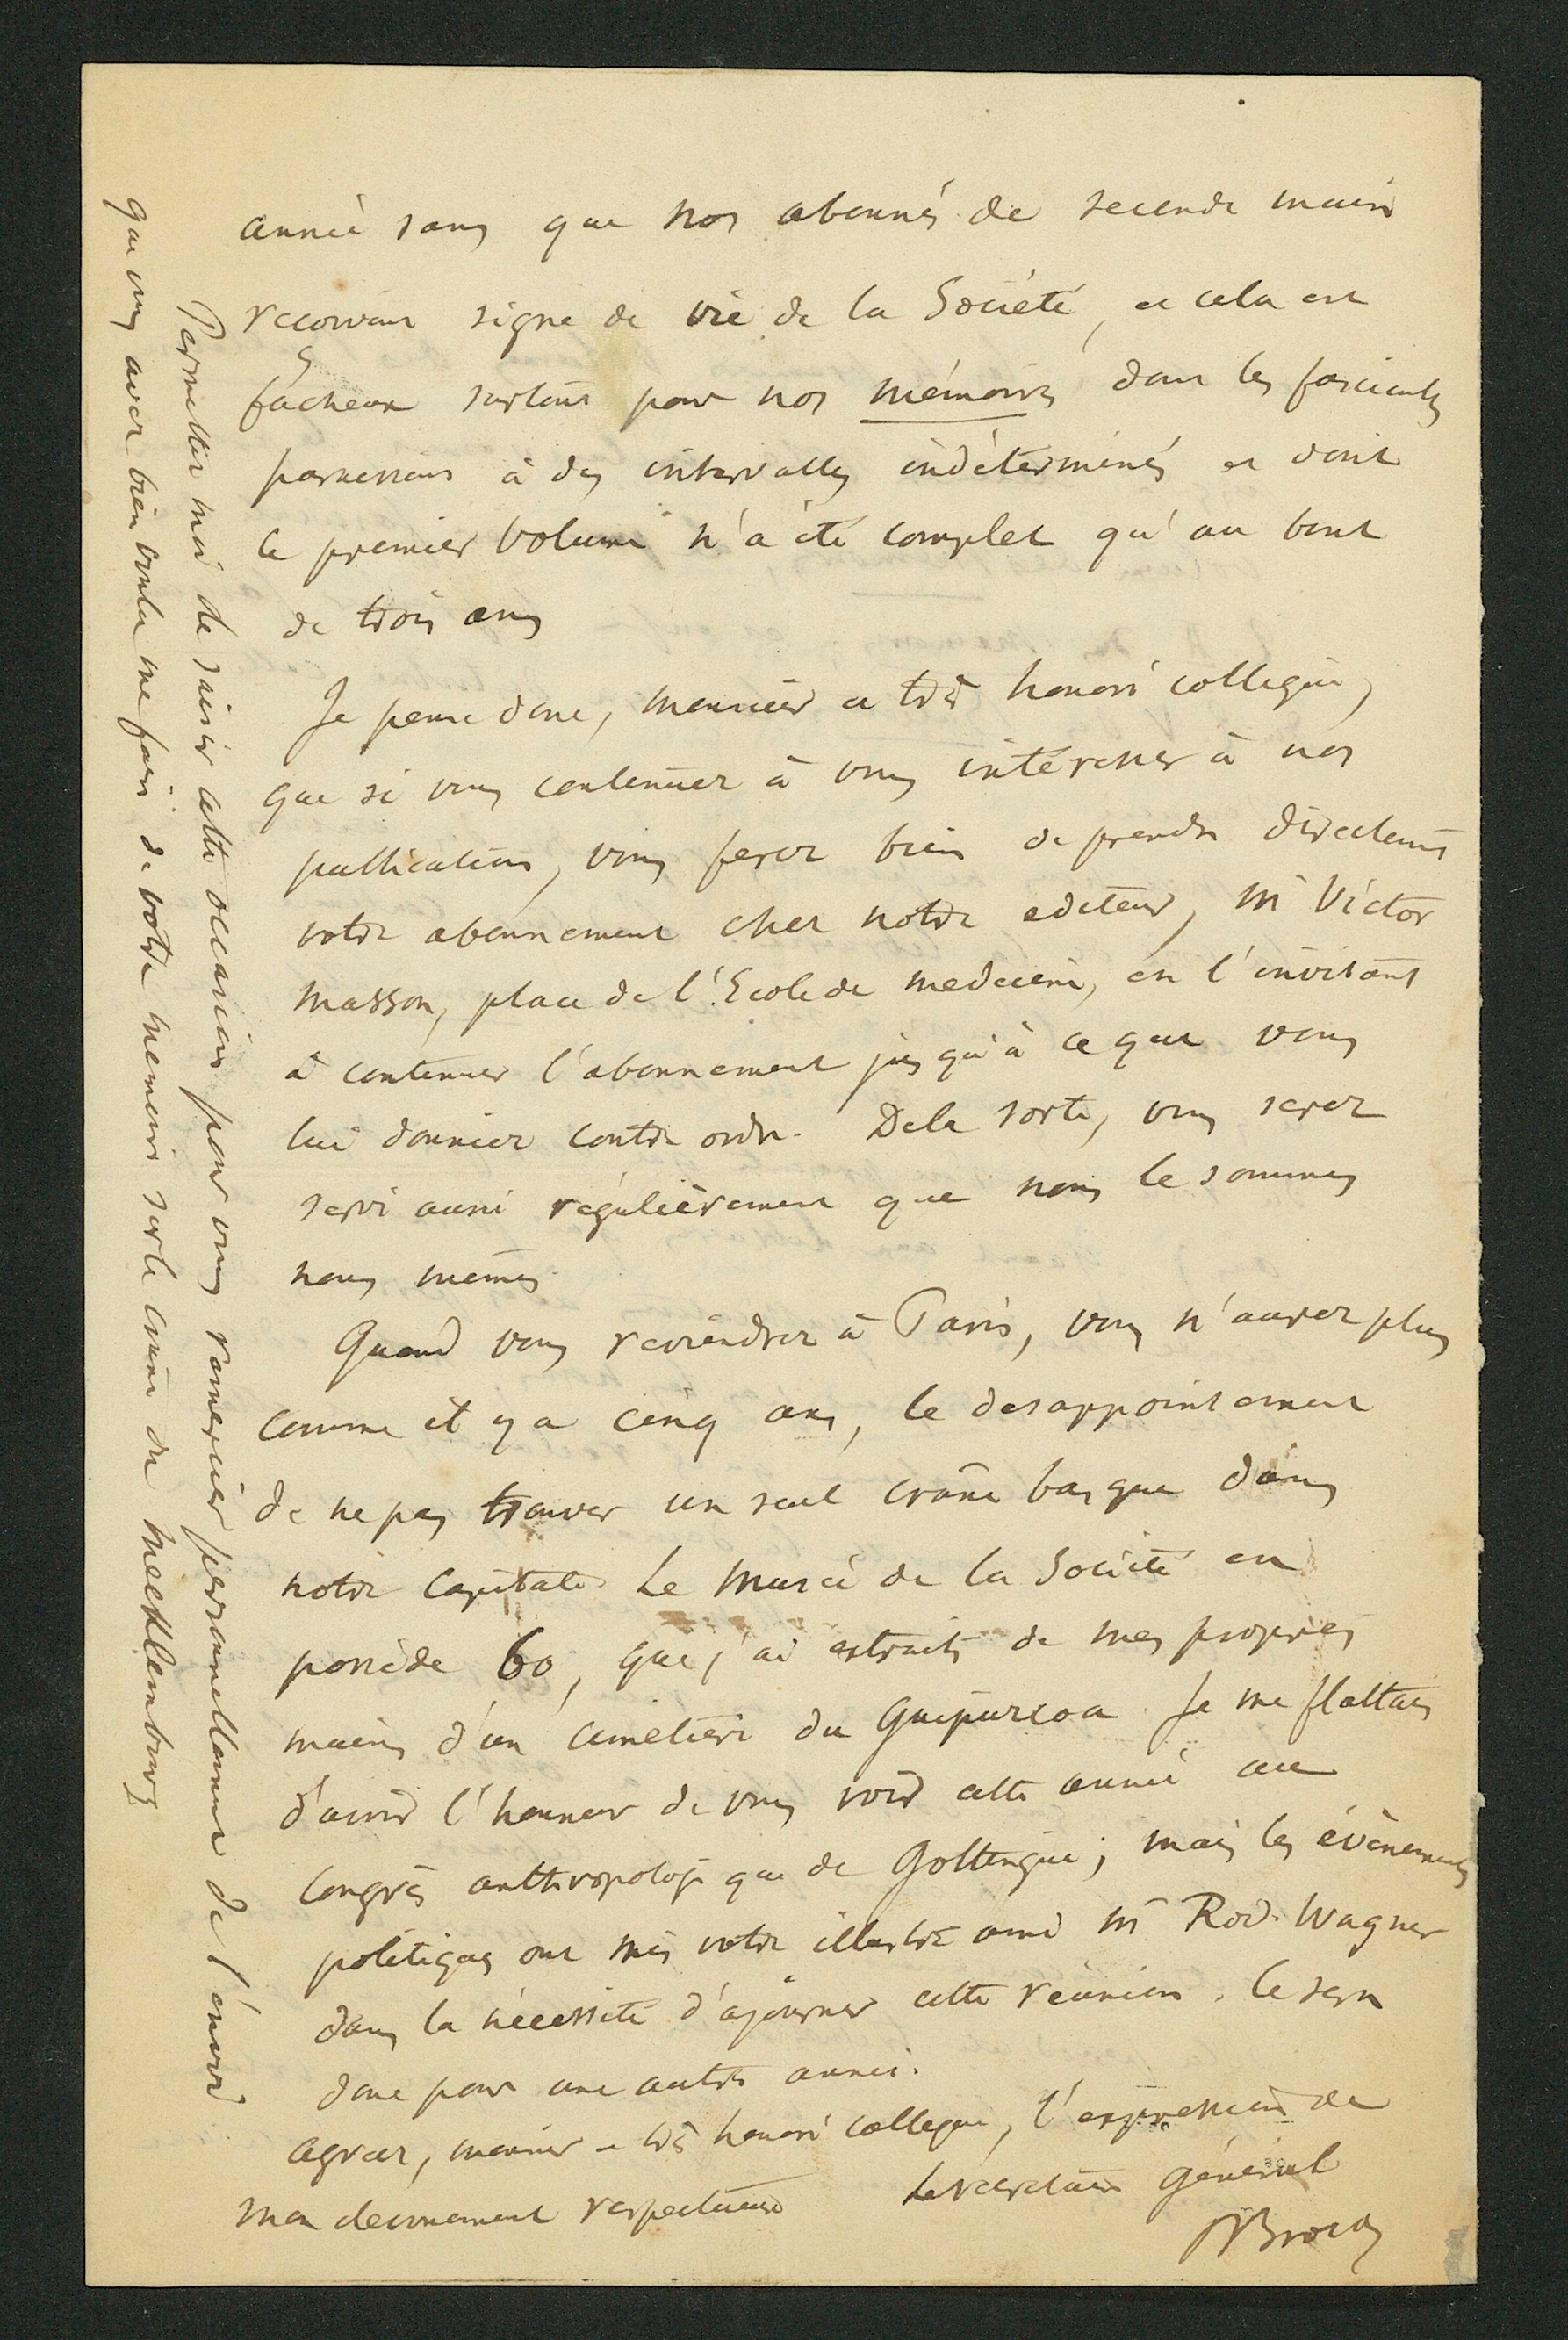 année sans que nos abonnés de seconde main
reçoivent signe de vie de la Société, et cela est
fâcheux surtout pour nos mémoires dont les fascicules
paraissent à des intervalles indéterminés et dont
le premier volume n'a été complet qu'au bout
de trois ans
Je pense donc, monsieur et très honoré collegue,
que si vous continuez à vous intéresser à nos
publications, vous ferez bien de prendre directement
votre abonnement chez notre editeur, Mr Victor
Masson, place de l'Ecole de medecine, en l'invitant
à continuer l'abonnement jusqu'à ce que vous
lui donniez contre ordre. De la sorte, vous serez
servi aussi régulièrement que nous le sommes
nous mêmes.
Quand vous reviendrez à Paris, vous n'aurez plus
comme il y a cinq ans, le desappointement
de ne pas trouver un seul crâne basque dans
notre Capitale. Le Musée de la Société en
possède 60, que j'ai extraits de mes propres
mains d'un cimetière du Guipuzcoa. Je me flattais
d'avoir l'honneur de vous voir cette année au
Congrès anthropologique de Gottingue; mais les évènements
politiques ont mis votre illustre ami Mr Rod. Wagner
dans la nécessité d'ajourner cette réunion. Ce sera
donc pour une autre année.
Agréez, monsieur et très honoré collegue, l'expression de
mon devouement respectueux
Le secretaire Général
P Broca
Permettez moi de saisir cette occasion pour vous remercier personnellement de l'envoi
que vous avez bien voulu me faire de votre memoire sur le crâne du Mecklembourg